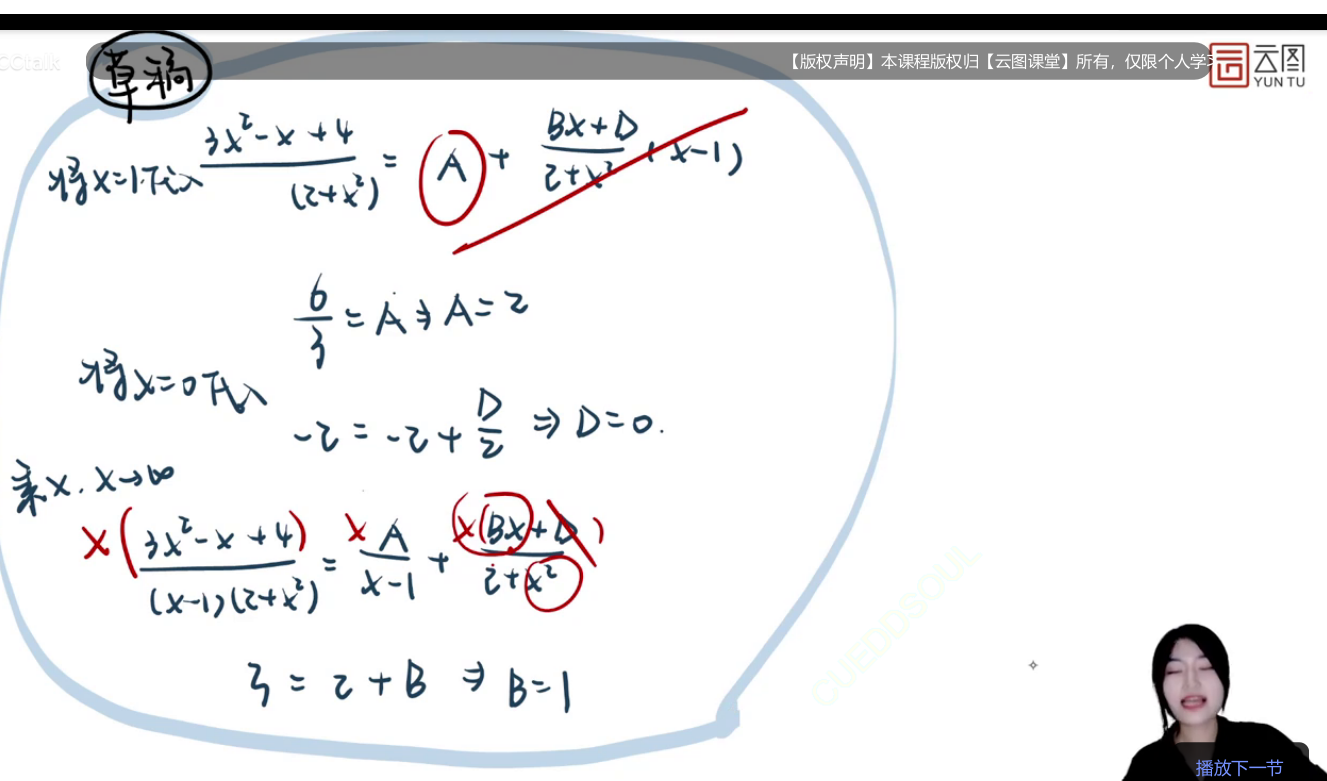 CCtalk
草稿
【版权声明】本课程版权归【云图课堂】所有，仅限个人学习
云图
YUN TU
将x=1代入 (3x²-x+4)/(2+x²) = A + (Bx+D)/(2+x²) · (x-1)
6/3 = A ⇒ A=2
将x=0代入
-2 = -2 + D/2 ⇒ D=0.
乘x. x→∞
x((3x²-x+4))/((x-1)(2+x²)) = xA/(x-1) + x(Bx+D)/(2+x²)
3 = 2+B ⇒ B=1
CUEDDSOUL
播放下一节